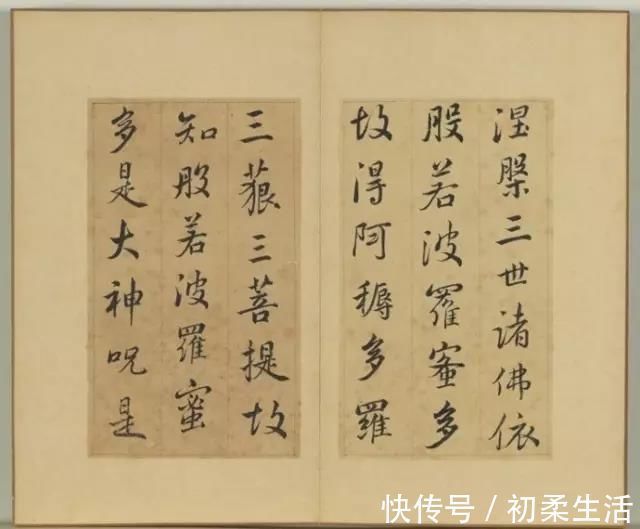 涅槃三世诸佛依
般若波羅蜜多
故得阿耨多羅
三藐三菩提故
知般若波羅蜜
多是大神呪是
快传号/初柔生活